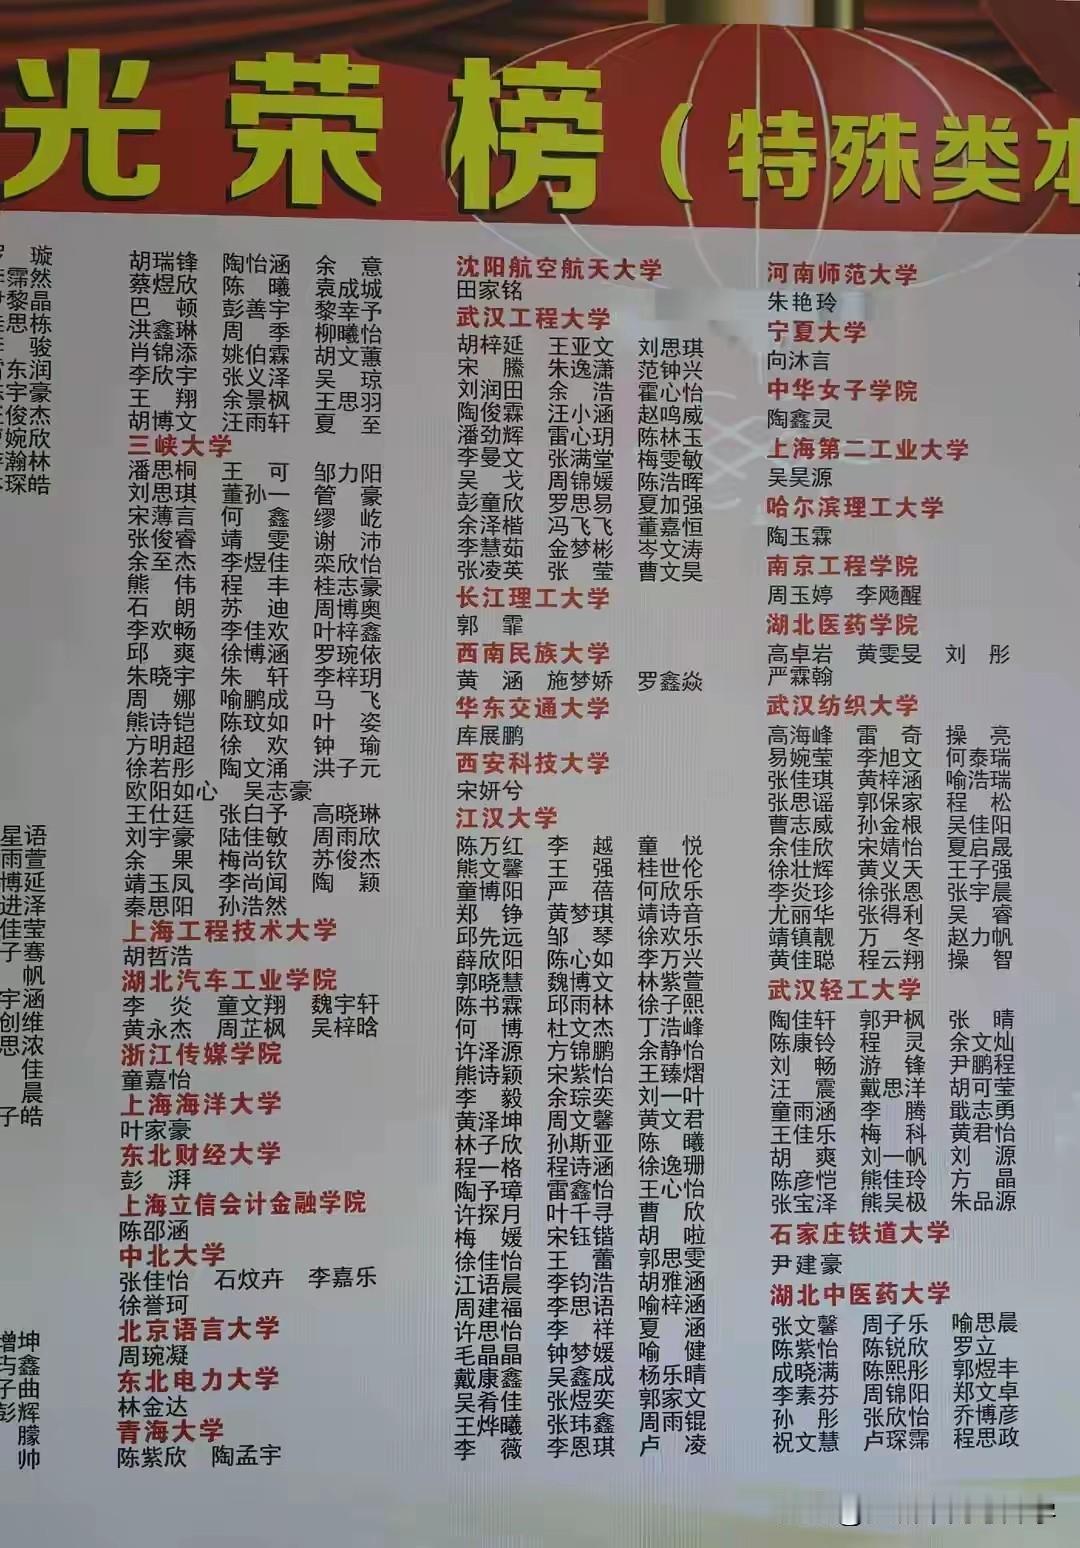 光荣榜（特殊类本
璇
霈然
黎晶
思栋
骏
东润
宇豪
俊杰
婉欣
瀚林
琛皓
星语
雨萱
博延
进泽
佳莹
子骞
帆
宇涵
创维
思浓
佳
晨
子皓
增坤
鑫
子曲
彭辉
朦
帅
胡瑞锋 陶怡涵 余意
蔡煜欣 陈曦 袁成城
巴顿 彭善宇 黎幸予
洪鑫琳 周季 柳曦怡
肖锦添 姚伯霖 胡文蕙
李欣宇 张义泽 吴琼
王翔 余景枫 王思羽
胡博文 汪雨轩 夏至
三峡大学
潘思桐 王可 邹力阳
刘思琪 董孙一 管豪
宋薄言 何鑫 缪屹
张俊睿 靖雯 谢沛
余至杰 李煜佳 栾欣怡
熊伟 程丰 桂志豪
石朗 苏迪 周博奥
李欢畅 李佳欢 叶梓鑫
邱爽 徐博涵 罗琬依
朱晓宇 朱轩 李梓玥
周娜 喻鹏成 马飞
熊诗铠 陈玟如 叶姿
方明超 徐欢 钟瑜
徐若彤 陶文涌 洪子元
欧阳如心 吴志豪
王仕廷 张白予 高晓琳
刘宇豪 陆佳敏 周雨欣
余果 梅尚钦 苏俊杰
靖玉凤 李尚闻 陶颖
秦思阳 孙浩然
上海工程技术大学
胡哲浩
湖北汽车工业学院
李炎 童文翔 魏宇轩
黄永杰 周芷枫 吴梓晗
浙江传媒学院
童嘉怡
上海海洋大学
叶家豪
东北财经大学
彭湃
上海立信会计金融学院
陈邵涵
中北大学
张佳怡 石炆卉 李嘉乐
徐誉珂
北京语言大学
周琬凝
东北电力大学
林金达
青海大学
陈紫欣 陶孟宇
沈阳航空航天大学
田家铭
武汉工程大学
胡梓延 王亚文 刘思琪
宋腾 朱逸潇 范钟兴
刘润田 余浩 霍心怡
陶俊霖 汪小涵 赵鸣威
潘劲辉 雷心玥 陈林玉
李曼文 张满堂 梅雯敏
吴戈 周锦媛 陈浩晖
彭童欣 罗思易 夏加强
余泽楷 冯飞飞 董嘉恒
李慧茹 金梦彬 岑文涛
张凌英 张莹 曹文昊
长江理工大学
郭霏
西南民族大学
黄涵 施梦娇 罗鑫焱
华东交通大学
库展鹏
西安科技大学
宋妍兮
江汉大学
陈万红 李越 童悦
熊文馨 王强 桂世伦
童博阳 严蓓 何欣乐
郑铮 黄梦琪 靖诗音
邱先远 邹琴 徐欢乐
薛欣阳 陈心如 李万兴
郭晓慧 魏博文 林紫萱
陈书霖 邱雨林 徐子熙
何博 杜文杰 丁浩峰
许泽源 方锦鹏 余静怡
熊诗颖 宋紫怡 王臻熠
李毅 余琮奕 刘一叶
黄泽坤 周文馨 黄文君
林子欣 孙斯亚 陈曦
程一格 程诗涵 徐逸珊
陶予璋 雷鑫怡 王心怡
许探月 叶千寻 曹欣
梅媛 宋钰锴 胡啦
徐佳怡 王蕾 郭思雯
江语晨 李钧浩 胡雅涵
周建福 李思语 喻梓涵
许思怡 李祥 夏涵
毛晶晶 钟梦媛 喻健
戴康鑫 吴鑫成 杨乐晴
吴肴佳 张煜奕 郭家文
王烨曦 张玮鑫 周雨锟
李薇 李恩琪 卢凌
河南师范大学
朱艳玲
宁夏大学
向沐言
中华女子学院
陶鑫灵
上海第二工业大学
吴昊源
哈尔滨理工大学
陶玉霖
南京工程学院
周玉婷 李飏醒
湖北医药学院
高卓岩 黄雯旻 刘彤
严霖翰
武汉纺织大学
高海峰 雷奇 操亮
易婉莹 李旭文 何泰瑞
张佳琪 黄梓涵 喻浩瑞
张思谣 郭保家 程松
曹志威 孙金根 吴佳阳
余佳欣 宋婧怡 夏启晟
徐壮辉 黄义天 王子强
李炎珍 徐张恩 张宇晨
尤丽华 张得利 吴睿
靖镇靓 万冬 赵力帆
黄佳聪 程云翔 操智
武汉轻工大学
陶佳轩 郭尹枫 张晴
陈康铃 程灵 余文灿
刘畅 游锋 尹鹏程
汪震 戴思洋 胡可莹
童雨涵 李腾 戢志勇
王佳乐 梅科 黄君怡
胡爽 刘一帆 刘源
陈彦恺 熊佳玲 方晶
张宝泽 熊吴极 朱品源
石家庄铁道大学
尹建豪
湖北中医药大学
张文馨 周子乐 喻思晨
陈紫怡 陈锐欣 罗立
成晓满 陈熙彤 郭煜丰
李素芬 周锦阳 郑文卓
孙彤 张欣怡 乔博彦
祝文慧 卢琛霈 程思政